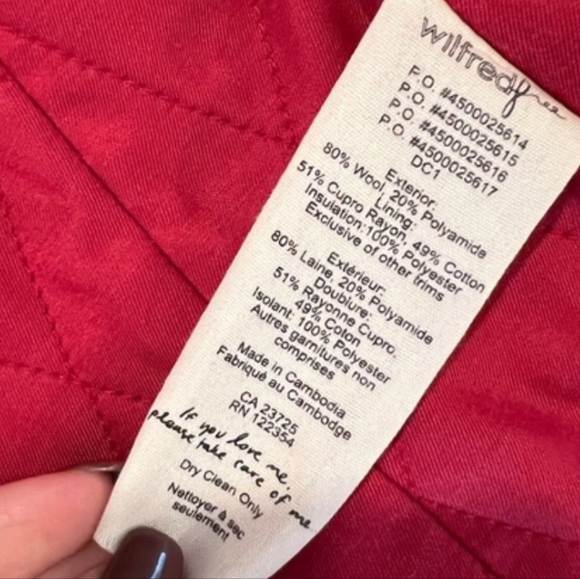 wilfredfree
P.O. #4500025614
P.O. #4500025615
P.O. #4500025616
P.O. #4500025617
DC1
Exterior:
80% Wool, 20% Polyamide
Lining:
51% Cupro Rayon, 49% Cotton
Insulation:100% Polyester
Exclusive of other trims
Extérieur:
80% Laine, 20% Polyamide
Doublure:
51% Rayonne Cupro,
49% Coton
Isolant: 100% Polyester
Autres garnitures non
comprises
Made in Cambodia
Fabriqué au Cambodge
CA 23725
RN 122354
If you love me,
please take care of me
Dry Clean Only
Nettoyer à sec
seulement